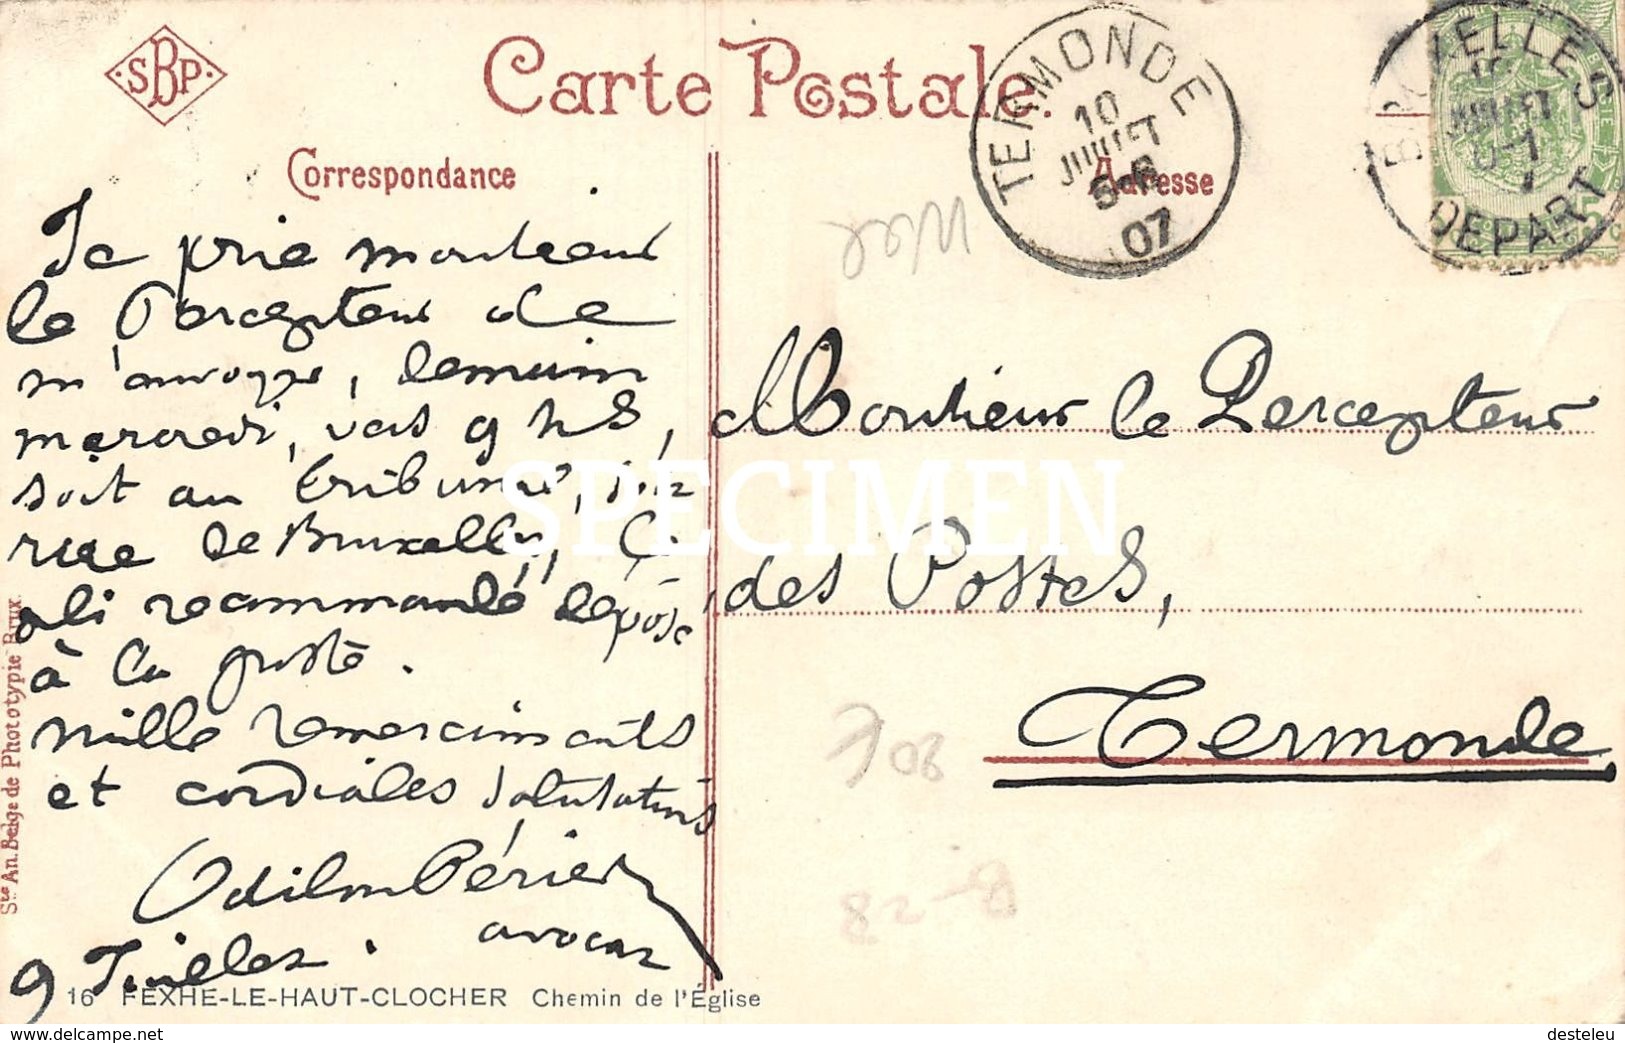 SBP
Carte Postale.
Correspondance
Adresse
TERMONDE
10
JUILLET
07
BRUXELLES
JUILLET
DEPART
Je prie monsieur
le Percepteur de
m'envoyer, demain
mercredi, vers 9 hs,
soit au tribunal,
rue de Bruxelles,
pli recommandé déposé
à la poste.
Mille remerciments
et cordiales salutations
Odilon Périer
avocat
9 Juillet.
Monsieur le Percepteur
des Postes,
Termonde
SPECIMEN
Ste An. Belge de Phototypie Brux.
16 FEXHE-LE-HAUT-CLOCHER Chemin de l'Église
www.delcampe.net
desteleu